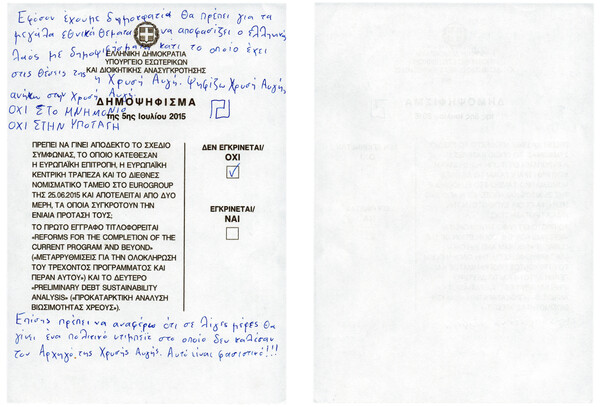 Εφόσον έχουμε δημοκρατία θα πρέπει για τα
μεγάλα εθνικά θέματα να αποφασίζει ο ελληνικός
λαός με δημοψηφίσματα κάτι το οποίο έχει
ΕΛΛΗΝΙΚΗ ΔΗΜΟΚΡΑΤΙΑ
ΥΠΟΥΡΓΕΙΟ ΕΣΩΤΕΡΙΚΩΝ
στις θέσεις της η Χρυσή Αυγή. Ψηφίζω Χρυσή Αυγή,
ΚΑΙ ΔΙΟΙΚΗΤΙΚΗΣ ΑΝΑΣΥΓΚΡΟΤΗΣΗΣ
ανήκω στην Χρυσή Αυγή.
ΔΗΜΟΨΗΦΙΣΜΑ
ΟΧΙ ΣΤΟ ΜΝΗΜΟΝΙΟ
της 5ης Ιουλίου 2015
ΟΧΙ ΣΤΗΝ ΥΠΟΤΑΓΗ
ΠΡΕΠΕΙ ΝΑ ΓΙΝΕΙ ΑΠΟΔΕΚΤΟ ΤΟ ΣΧΕΔΙΟ
ΣΥΜΦΩΝΙΑΣ, ΤΟ ΟΠΟΙΟ ΚΑΤΕΘΕΣΑΝ
Η ΕΥΡΩΠΑΪΚΗ ΕΠΙΤΡΟΠΗ, Η ΕΥΡΩΠΑΪΚΗ
ΚΕΝΤΡΙΚΗ ΤΡΑΠΕΖΑ ΚΑΙ ΤΟ ΔΙΕΘΝΕΣ
ΝΟΜΙΣΜΑΤΙΚΟ ΤΑΜΕΙΟ ΣΤΟ EUROGROUP
ΤΗΣ 25.06.2015 ΚΑΙ ΑΠΟΤΕΛΕΙΤΑΙ ΑΠΟ ΔΥΟ
ΜΕΡΗ, ΤΑ ΟΠΟΙΑ ΣΥΓΚΡΟΤΟΥΝ ΤΗΝ
ΕΝΙΑΙΑ ΠΡΟΤΑΣΗ ΤΟΥΣ;
ΤΟ ΠΡΩΤΟ ΕΓΓΡΑΦΟ ΤΙΤΛΟΦΟΡΕΙΤΑΙ
«REFORMS FOR THE COMPLETION OF THE
CURRENT PROGRAM AND BEYOND»
(«ΜΕΤΑΡΡΥΘΜΙΣΕΙΣ ΓΙΑ ΤΗΝ ΟΛΟΚΛΗΡΩΣΗ
ΤΟΥ ΤΡΕΧΟΝΤΟΣ ΠΡΟΓΡΑΜΜΑΤΟΣ ΚΑΙ
ΠΕΡΑΝ ΑΥΤΟΥ») ΚΑΙ ΤΟ ΔΕΥΤΕΡΟ
«PRELIMINARY DEBT SUSTAINABILITY
ANALYSIS» («ΠΡΟΚΑΤΑΡΚΤΙΚΗ ΑΝΑΛΥΣΗ
ΒΙΩΣΙΜΟΤΗΤΑΣ ΧΡΕΟΥΣ»).
ΔΕΝ ΕΓΚΡΙΝΕΤΑΙ/
ΟΧΙ
ΕΓΚΡΙΝΕΤΑΙ/
ΝΑΙ
Επίσης πρέπει να αναφέρω ότι σε λίγες μέρες θα
γίνει ένα πολιτικό ντιμπέιτ στο οποίο δεν καλέσαν
τον Αρχηγό της Χρυσής Αυγής. Αυτό είναι φασιστικό!!!